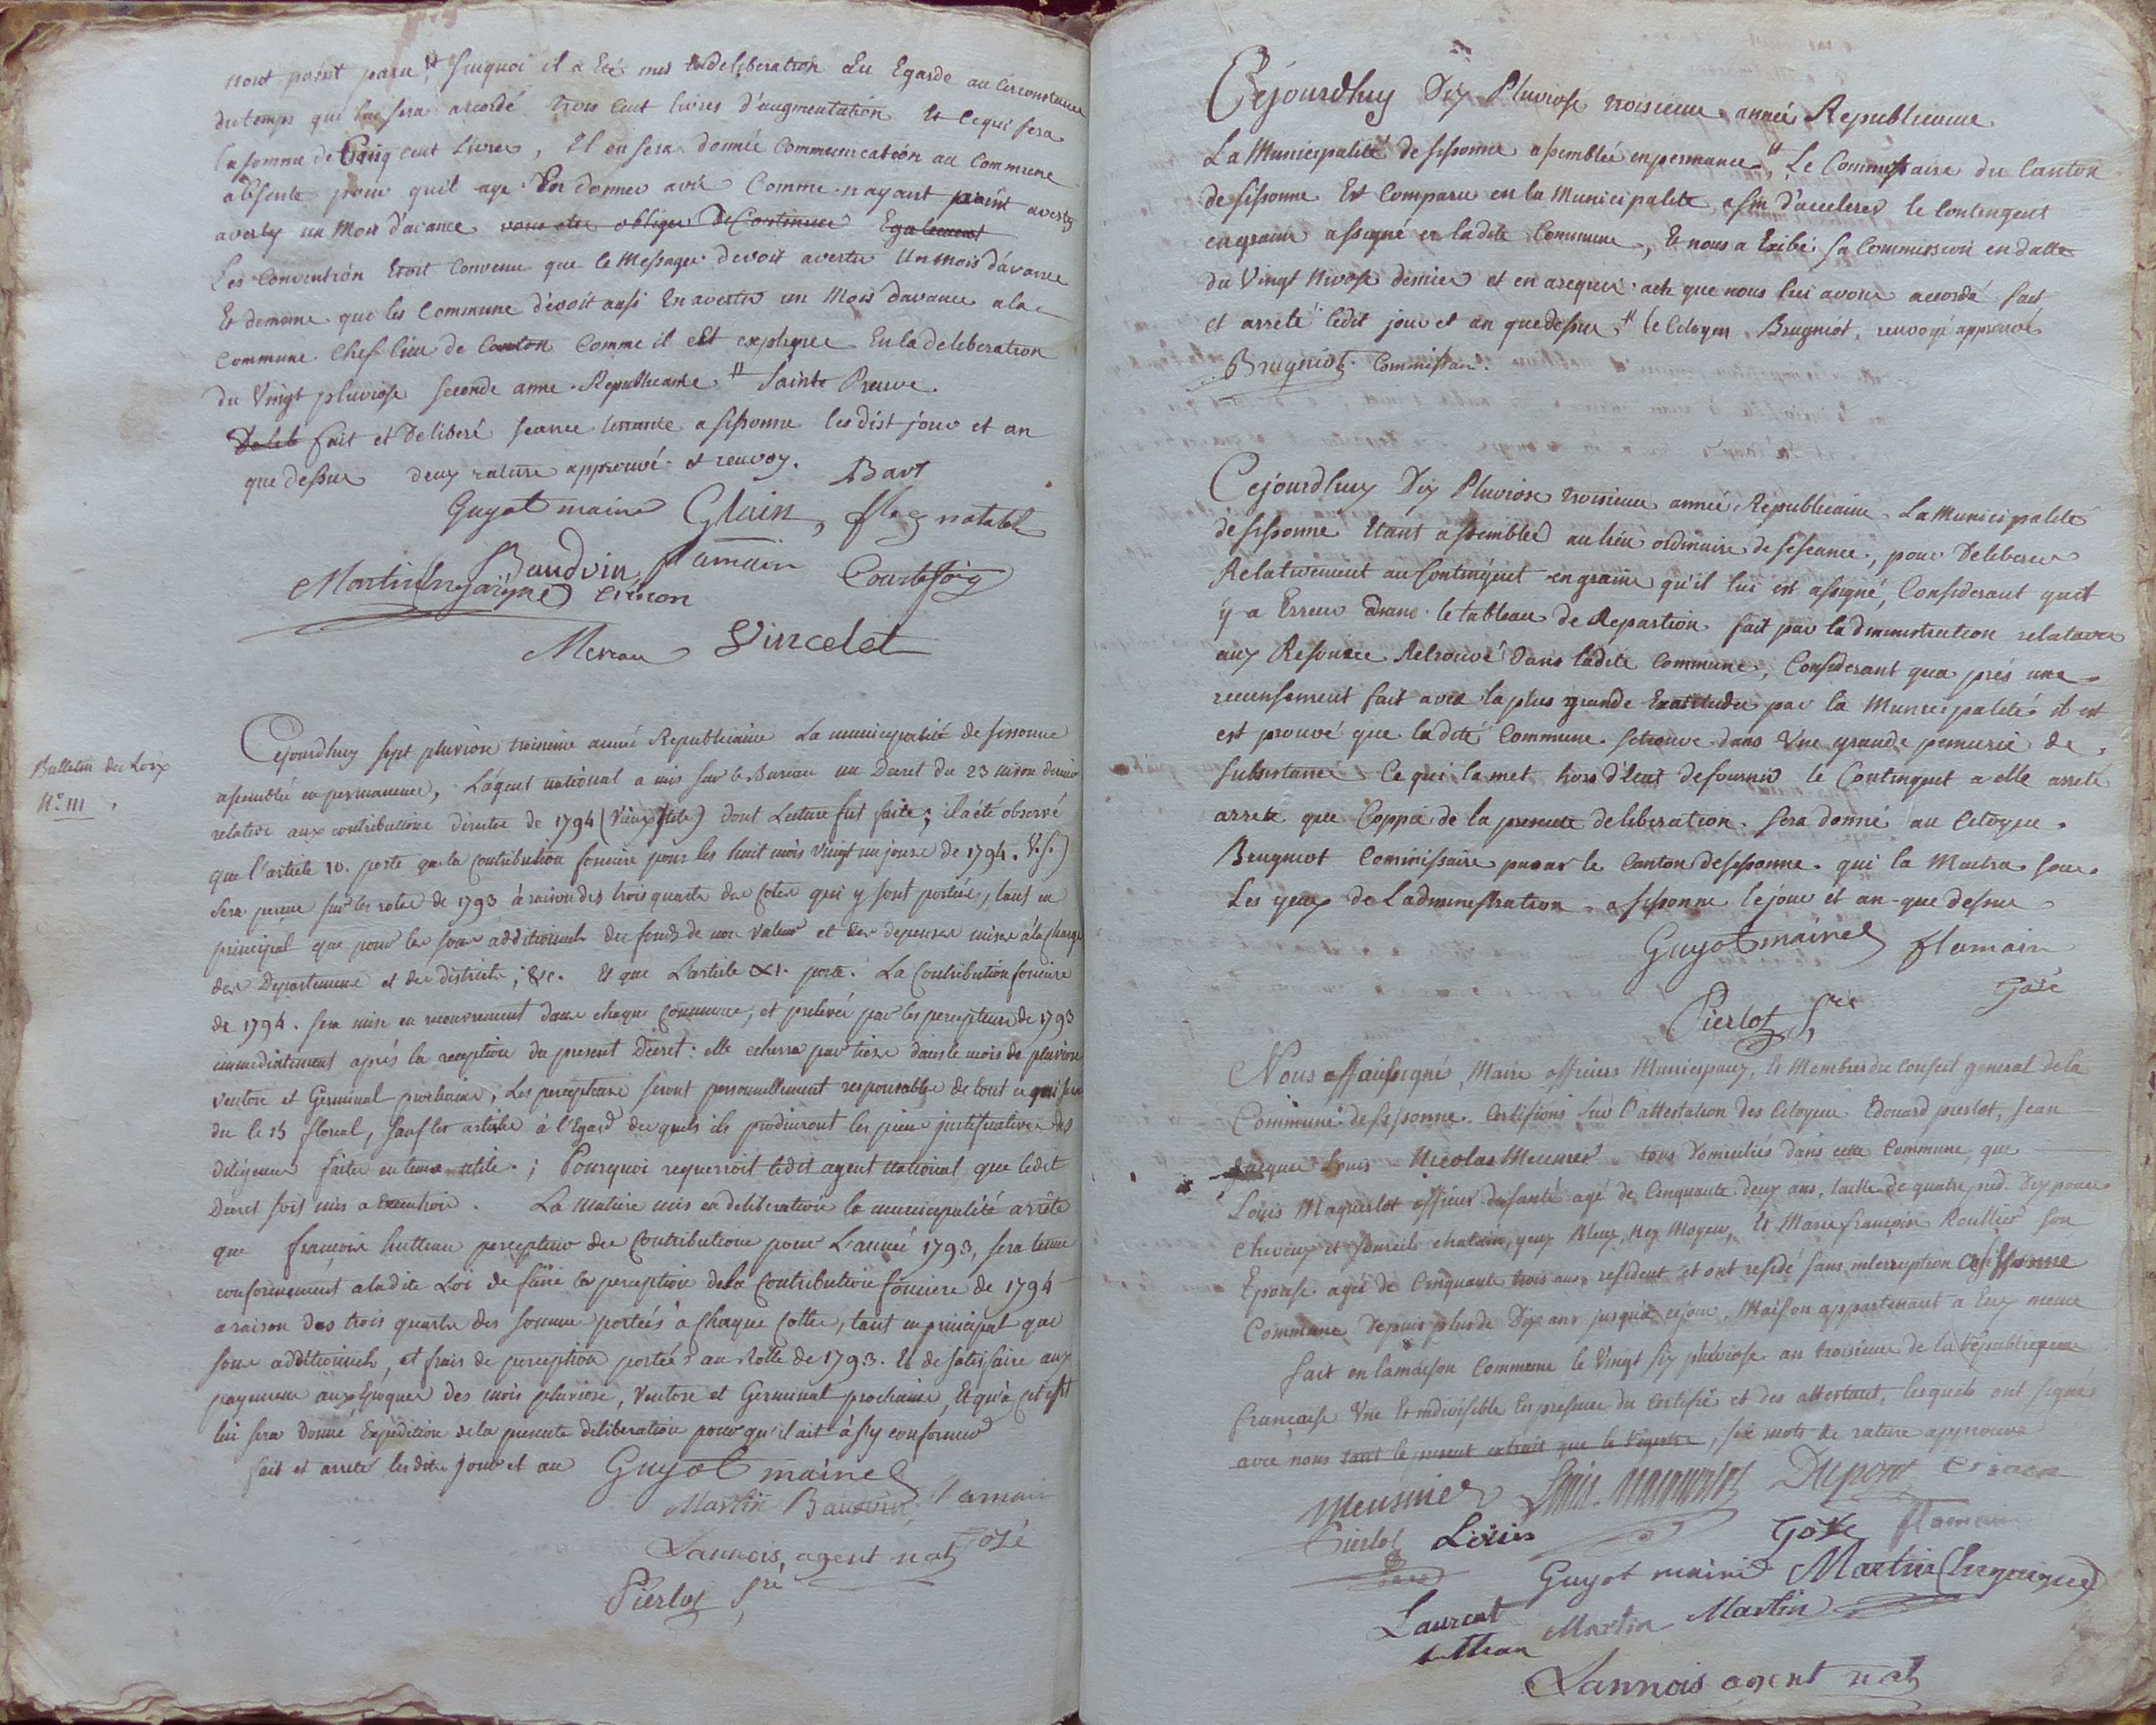 nont point paru, # surquoi il a Eté mis En deliberation Eu Egarde au Circonstance
du temps que lui sera accordé trois Cent livres d'augmentation Et Ce qui fera
la somme de Cinq cent Livres, Il en sera donnée Communication au Commune
absente pour quil aye En donner avis Comme nayant point avertis
averty un Mois d'avance vous etes obliger De Continuer Egalement
Les Convention Etoit Convenu que le Messager devoit avertir Un mois d'avance
Et demême que les Commune dévoit aussi En avertir un Mois davance a la
Commune Chef lieu de Canton Comme il est expliquee En la deliberation
du Vingt pluviose seconde anne Republicaine # Sainte Preuve.
Delib fait et Deliberé seance tenante a sissonne les dist jour et an
que dessus deux rature approuvé et renvoy. Bart
Guyot maire Glain, fleg notable
Baudoin flamain
Martin Courtefoig
Simon
Meneau Vincelet
Cejourdhuy sept pluviose troisieme année Republicaine La municipalité de sissonne
Bulletin des Loix
N.º 111
assemblée en permanence, L'agent national a mis sur le Bureau un Decret du 23 nivose dernier
relative aux contributions directes de 1794 (Vieux stile) dont Lecture fut faite; il a été observé
que l'article 10. porte que la Contribution fonciere pour les huit mois vingt un jours de 1794. V.S.)
sera perçue sur les roles de 1793 à raison des trois quarts des Cotes qui y sont portées, tant en
principal que pour les sous additionnels des fonds de non valeur et des depenses mises à la charge
des Departemens et des districts, &c. Et que L'article XI. porte. La Contribution fonciere
de 1794. sera mise en recouvrement dans chaque Commune, et prelevée par les percepteurs de 1793
immediatement après la reception du present Decret: elle echerra par tiers dans le mois de pluviose
ventose et Germinal prochains, Les percepteurs seront personnellement responsables de tout ce qui sera
du le 15 floreal, sauf les articles à l'Egard desquels ils produiront les pieces justificatives des
diligences faites en tems utile. ; Pourquoi requerroit ledit agent National que ledit
Decret soit mis a Execution. La Matiere mis en deliberation la municipalité arrête
que françois hutteau percepteur des Contributions pour L'année 1793, sera tenue
conformement a ladite Loi de faire la perception de la Contribution fonciere de 1794
a raison des trois quarts des sommes portées à Chaque Cotte, tant en principal que
sous additionnels, et frais de perception portées au Rolle de 1793. Et de satisfaire aux
payemens aux Epoques des mois pluviose, Ventose et Germinal prochains, Et qu'à cet effet
lui sera Donné Expédition de la presente deliberation pour qu'il ait à s'y conformer
fait et arreté lesdits Jour et an Guyot maire
Martin Baudoin flamain
Lannois, agent nat Gosé
Pierlot Sre
Cejourdhuy Dix Pluviose troisieme année Republicaine
La Municipalité de sissonne assemblée en permance, # Le Commissaire du Canton
de sissonne Est Comparu en la Municipalité afin d'accelerer le Contingent
en grains assigné en ladite Commune, Et nous a Exibé sa Commission en datte
du Vingt Nivose dernier et en a requis acte que nous lui avons accordé fait
et arreté ledit jour et an que dessus # le Citoyen Brugniot, renvoyé approuvé
Brugniot Commissaire.
Cejourdhuy Dix Pluviose troisieme année Republicaine La Municipalité
de sissonne Etant assemblée au lieu ordinaire de sesseance, pour Deliberer
Relativement au Contingent en graine qu'il lui est assigné, Considerant quil
y a Erreur dans le tableau de Repartion fait par ladministration relatives
aux Resource Retrouvé Dans ladite Commune, Considerant qua prés une
recensement fait avec la plus grande Exatitudes par la Municipalité il est
est prouvé que ladite Commune se trouve dans Une grande penurie de
subsistance Ce qui la met hors d'Etat de fournir le Contingent a elle arreté
arrete que Coppie de la presente deliberation sera donné au Citoyen
Brugniot Commissaire pour le Canton de sissonne qui la Mettra sous
Les yeux de Ladministration a sissonne le jour et an que dessus
Guyot maire flamain
Gosé
Pierlot Sre
Nous soussigné, Maire officiers Municipaux, Et Membres du Conseil general de la
Commune de sissonne. Certifions sur l'attestation des Citoyens Edouard pierlot, Jean
Jacques Louis Nicolas Meusnier tous Domiciliés dans cette Commune que
Louis Maquerlot officier de santé agé de Cinquante deux ans, taille de quatre pied Dix pouces
Cheveux et sourcils chatain, yeux Bleux, Nez Moyen, Et Marie françoise Roullier son
Epouse agée de Cinquante trois ans, resident et ont residé sans interruption a sissonne
Commune depuis plus de Dix ans jusqu'a ce jour, Maison appartenant a Eux meme
fait en la maison Commune le Vingt six pluviose an troisieme de la république
française Une Et indivisible En presence du Certifié et des attestant, lesquels ont signé
avec nous tant le present extrait que le registre, six mots de rature approuvé
Meusnier Louis Maquerlot Dupont Simon
Pierlot Louis Gosé flamain
Guyot maire Martin
Laurent Martin Martin
hutteau
Lannois agent nat